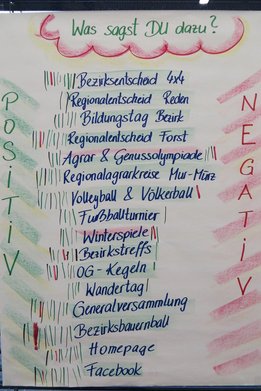 Was sagst DU dazu?
POSiTiV
NEGATiV
Bezirksentscheid 4x4
Regionalentscheid Reden
Bildungstag Bezirk
Regionalentscheid Forst
Agrar & Genussolympiade
Regionalagrarkreise Mur-Mürz
Volleyball & Völkerball
Fußballturnier
Winterspiele
Bezirkstreffs
OG-Kegeln
Wandertag
Generalversammlung
Bezirksbauernball
Homepage
Facebook